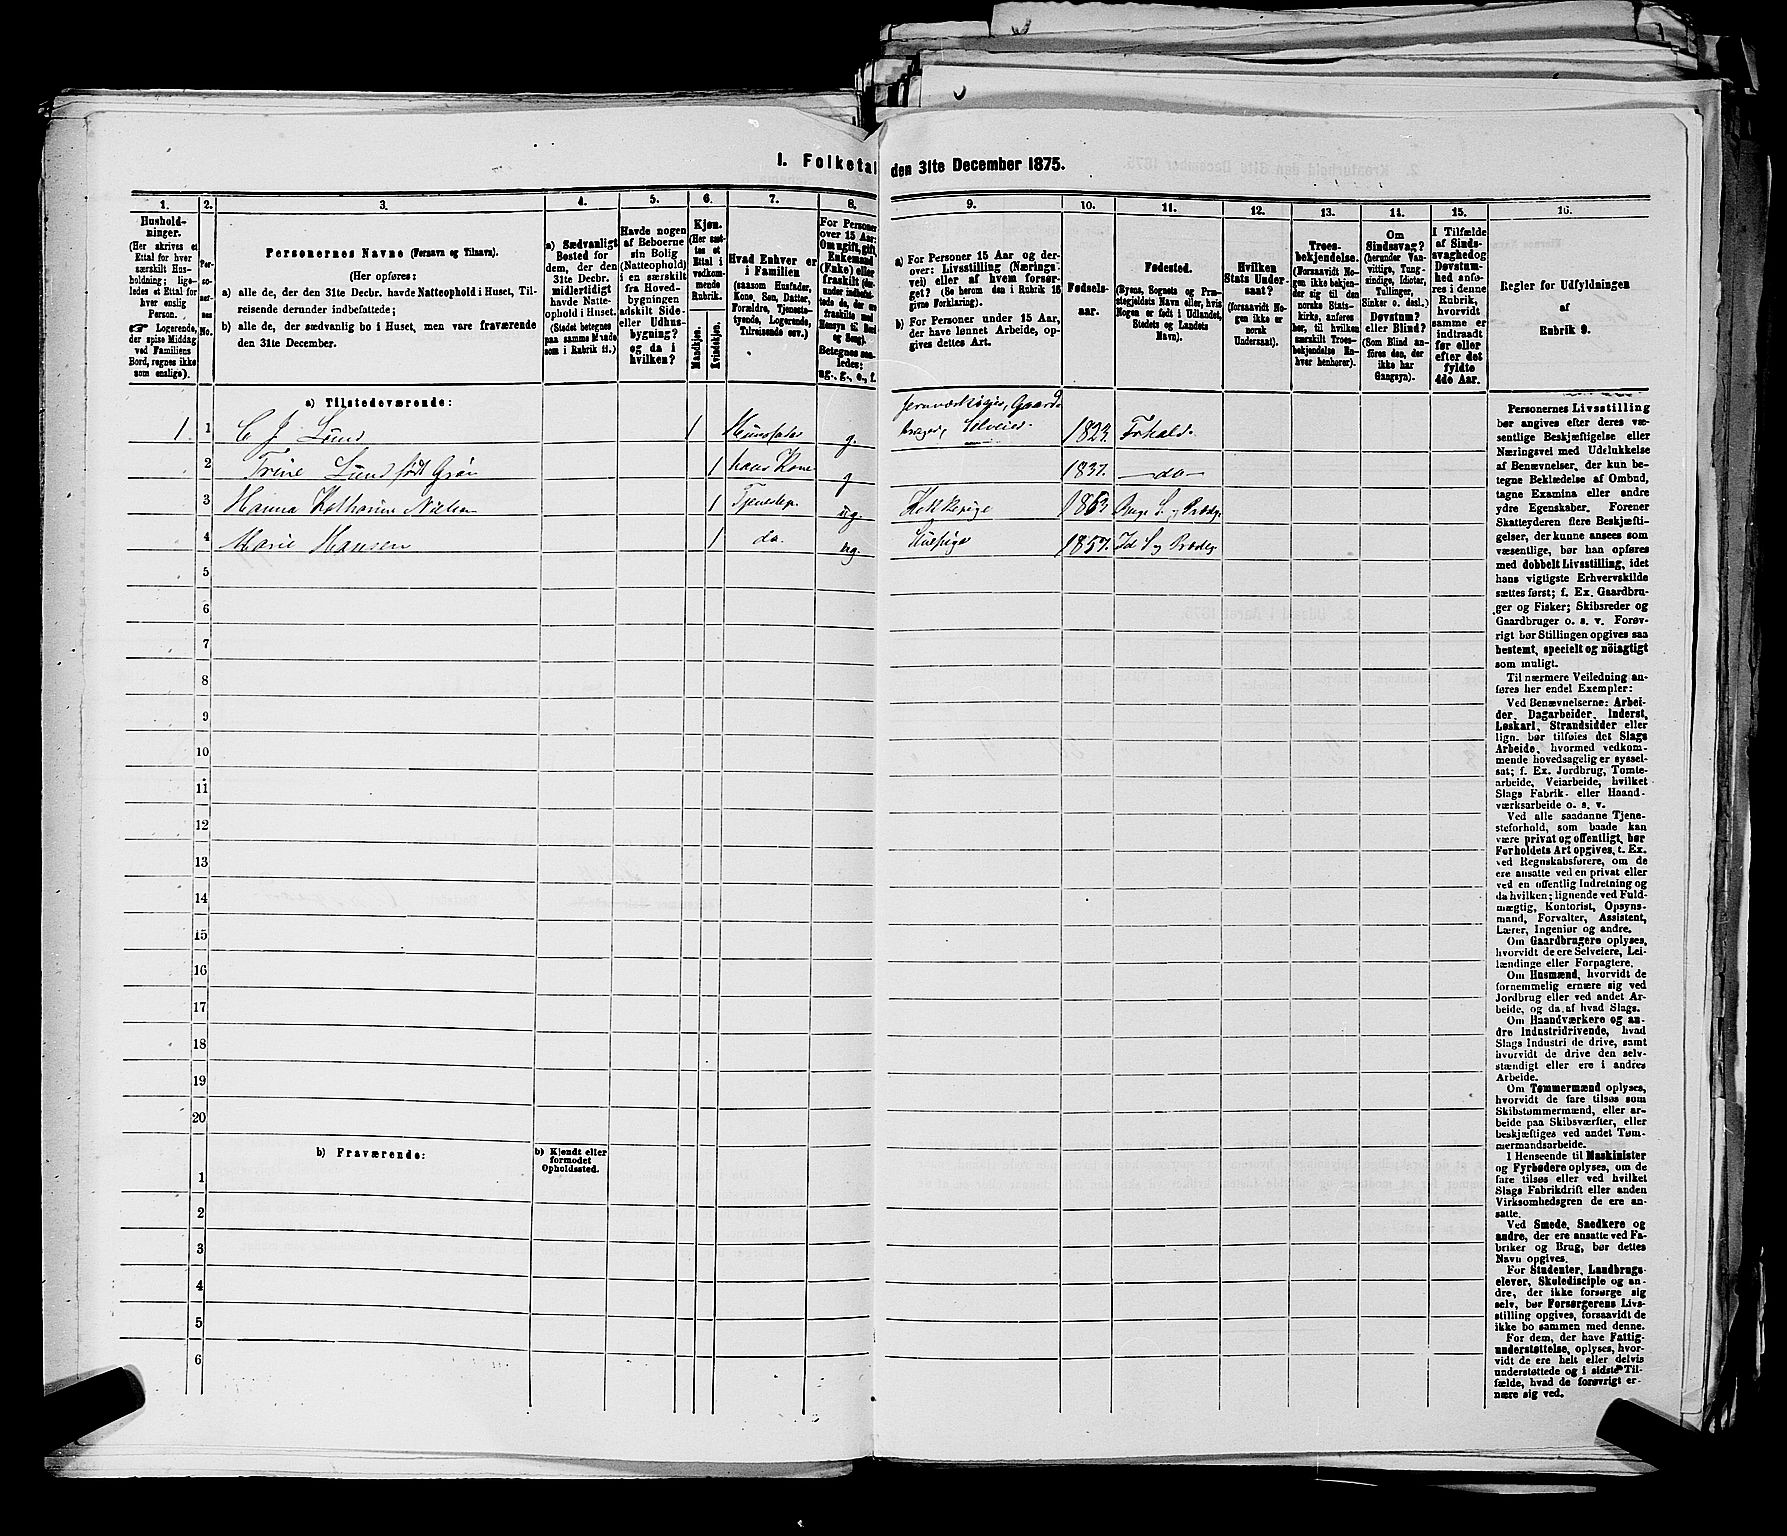 I. Folketal
den 31te December 1875.
1.
2.
3.
4.
5.
6.
7.
8.
9.
10.
11.
12.
13.
14.
15.
16.
Hushold-
ninger.
(Her skrives et
Ettal for hver
særskilt Hus-
holdning; lige-
ledes et Ettal for
hver enslig
Person.
☞ Logerende,
der spise Middag
ved Familiens
Bord, regnes ikke
som enslige).
Per-
soner-
nes
No.
Personernes Navne (Fornavn og Tilnavn).
(Her opføres:
a) alle de, der den 31te Decbr. havde Natteophold i Huset, Til-
reisende derunder indbefattede;
b) alle de, der sædvanlig bo i Huset, men vare fraværende
den 31te December.
a) Sædvanligt
Bosted for
dem, der den
31te Decbr.
midlertidigt
havde Natte-
ophold i Huset.
(Stedet betegnes
paa samme Maade
som i Rubrik 11.)
Havde nogen
af Beboerne
sin Bolig
(Natteophold)
i en særskilt
fra Hoved-
bygningen
adskilt Side-
eller Udhus-
bygning?
og da i
hvilken?
Kjøn.
(Her sæt-
tes et
Ettal i
vedkom-
mende
Rubrik.
Mandkjøn.
Kvindekjøn.
Hvad Enhver er
i Familien
(saasom Husfader,
Kone, Søn, Datter,
Forældre, Tjeneste-
tyende, Logerende,
Tilreisende osv.)
For Personer
over 15 Aar:
Om ugift, gift,
Enkemand
(Enke) eller
fraskilt (der-
under indbefat-
tede de, der ere
fraskilte med
Hensyn til Bord
og Seng).
Betegnes saa-
ledes:
ug., g., e., f.
a) For Personer 15 Aar og der-
over: Livsstilling (Nærings-
vei) eller af hvem forsør-
get? (Se herom den i Rubrik 16
givne Forklaring).
b) For Personer under 15 Aar,
der have lønnet Arbeide, op-
gives dettes Art.
Fødsels-
aar.
Fødested.
(Byens, Sognets og Præ-
stegjeldets Navn eller, hvis
Nogen er født i Udlandet,
Stedets og Landets
Navn).
Hvilken
Stats Under-
saat?
(forsaavidt No-
gen ikke er
norsk
Undersaat).
Troes-
bekjendelse.
(Forsaavidt No-
gen ikke bekjen-
der sig til den
norske Stats-
kirke, anføres
her, til hvilken
særskilt Troes-
bekjendelse En-
hver henhører).
Om
Sindssvag?
(herunder Van-
vittige, Tung-
sindige, Idioter,
Tullinger,
Sinker o. desl.)
Døvstum?
eller Blind?
(Som Blind an-
føres den, der
ikke har
Gangsyn).
I Tilfælde
af Sinds-
svaghed og
Døvstum-
hed anfø-
res i denne
Rubrik,
hvorvidt
samme er
indtraadt
før eller
efter det
fyldte
4de Aar.
Regler for Udfyldningen
af
Rubrik 9.
a) Tilstedeværende:
1 1 C J Lund 1 Huusfader g. Gaard Selveier 1823. Trhald.
2 Trine Lund født Grön 1 hans Kone g 1837. —do—
3 Hanna Katharine Nielsen 1 Tjenestep. ug. Kokkepige 1853.
4 Marie Hansen 1 do. ug. Stuepige 1857. Id S og Prædg.
5
6
7
8
9
10
11
12
13
14
15
16
17
18
19
20
b) Fraværende:
b) Kjendt eller
formodet
Opholdssted.
1
2
3
4
5
6
Personernes Livsstilling
bør angives efter deres væ-
sentlige Beskjæftigelse eller
Næringsvei med Udelukkelse
af Benævnelser, der kun be-
tegne Beklædelse af Ombud,
tagne Examina eller andre
ydre Egenskaber. Forener
Skatteyderen flere Beskjæfti-
gelser, der kunne ansees som
væsentlige, bør han opføres
med dobbelt Livsstilling, idet
hans vigtigste Erhvervskilde
sættes først; f. Ex. Gaardbru-
ger og Fisker; Skibsreder og
Gaardbruger o. s. v. Forøv-
rigt bør Stillingen opgives saa
bestemt, specielt og nöiagtigt
som muligt.
Til nærmere Veiledning an-
føres her endel Exempler:
Ved Benævnelserne: Arbei-
der, Dagarbeider, Inderst,
Løskarl, Strandsidder eller
lign. bør tilføies det Slags
Arbeide, hvormed vedkom-
mende hovedsagelig er syssel-
sat; f. Ex. Jordbrug, Tomte-
arbeide, Veiarbeide, hvilket
Slags Fabrik- eller Haand-
værksarbeide o. s. v.
Ved alle saadanne Tjene-
steforhold, som baade kan
være privat og offentligt, bør
Forholdets Art opgives, t. Ex.
ved Regnskabsførere, om de
ere ansatte ved en privat eller
ved en offentlig Indretning og
da hvilken; lignende ved Fuld-
mægtig, Kontorist, Opsyns-
mand, Forvalter, Assistent,
Lærer, Ingeniør og andre.
Om Gaardbrugere oplyses,
hvorvidt de ere Selveiere, Lei-
lændinge eller Forpagtere.
Om Husmænd, hvorvidt de
fornemmelig ernære sig ved
Jordbrug eller ved andet Ar-
beide, og da af hvad Slags.
Om Haandværkere og an-
dre Industridrivende, hvad
Slags Industri de drive, samt
hvorvidt de drive den selv-
stændigt eller ere i andres
Arbeide.
Om Tømmermænd oplyses,
hvorvidt de fare tilsøs som
Skibstømmermænd, eller ar-
beide paa Skibsværfter, eller
beskjæftiges ved andet Tøm-
mermandsarbeide.
I Henseende til Maskinister
og Fyrbødere oplyses, om de
fare tilsøs eller ved hvilket
Slags Fabrikdrift eller anden
Virksomhedsgren de ere an-
satte.
Ved Smede, Snedkere og
andre, der ere ansatte ved Fa-
briker og Brug, bør dettes
Navn opgives.
For Studenter, Landbrugs-
elever, Skoledisciple og an-
dre, der ikke forsørge sig
selv, bør Forsørgerens Livs-
stilling opgives, forsaavidt de
ikke bo sammen med denne.
For dem, der have Fattig-
understøttelse, oplyses, hvor-
vidt de ere helt eller delvis
understøttede og i sidste Til-
fælde, hvad de forøvrigt er-
nære sig ved.